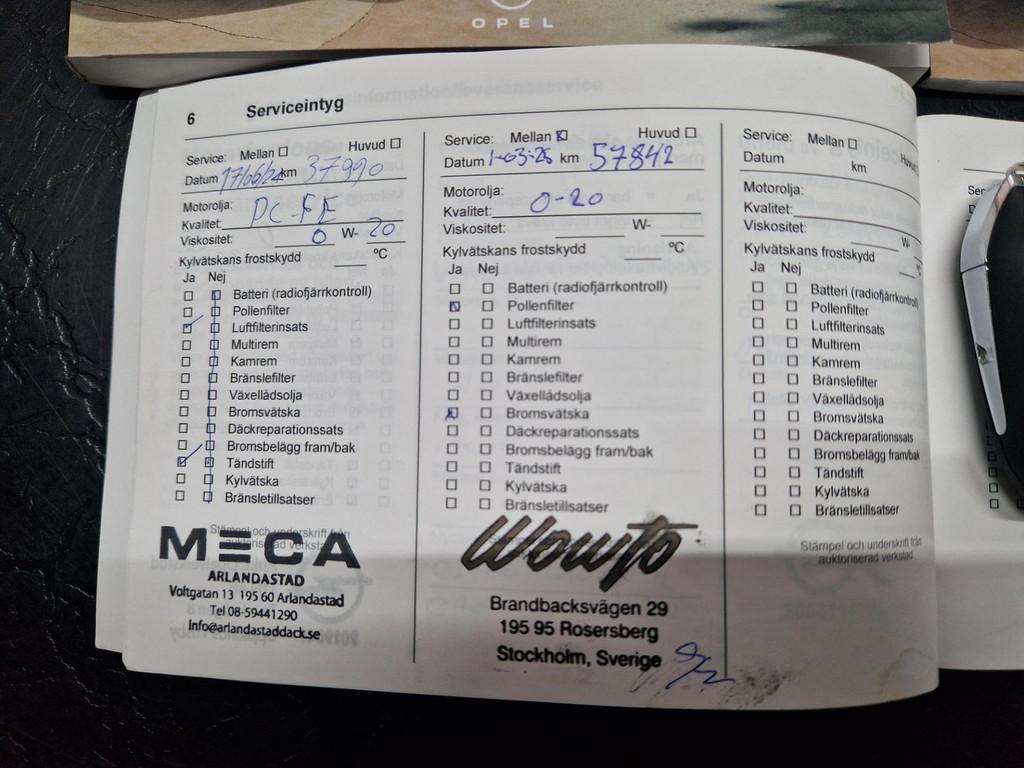 OPEL
6 Serviceintyg
Service: Mellan Huvud
Datum 17/06/24 km 37990
Motorolja:
Kvalitet: DC-FE
Viskositet: 0 W- 20
Kylvätskans frostskydd °C
Ja Nej
Batteri (radiofjärrkontroll)
Pollenfilter
Luftfilterinsats
Multirem
Kamrem
Bränslefilter
Växellådsolja
Bromsvätska
Däckreparationssats
Bromsbelägg fram/bak
Tändstift
Kylvätska
Bränsletillsatser
Stämpel och underskrift från
auktoriserad verkstad
MECA
ARLANDASTAD
Voltgatan 13 195 60 Arlandastad
Tel 08-59441290
Info@arlandastaddack.se
Service: Mellan Huvud
Datum 1-03-26 km 57842
Motorolja:
Kvalitet: 0-20
Viskositet: W-
Kylvätskans frostskydd °C
Ja Nej
Batteri (radiofjärrkontroll)
Pollenfilter
Luftfilterinsats
Multirem
Kamrem
Bränslefilter
Växellådsolja
Bromsvätska
Däckreparationssats
Bromsbelägg fram/bak
Tändstift
Kylvätska
Bränsletillsatser
Wowto
Brandbacksvägen 29
195 95 Rosersberg
Stockholm, Sverige
Service: Mellan Huvud
Datum km
Motorolja:
Kvalitet:
Viskositet: W-
Kylvätskans frostskydd °C
Ja Nej
Batteri (radiofjärrkontroll)
Pollenfilter
Luftfilterinsats
Multirem
Kamrem
Bränslefilter
Växellådsolja
Bromsvätska
Däckreparationssats
Bromsbelägg fram/bak
Tändstift
Kylvätska
Bränsletillsatser
Stämpel och underskrift från
auktoriserad verkstad